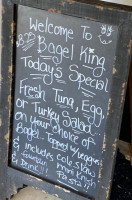 Welcome To
Bagel King
Today's Special
Fresh Tuna, Egg,
or Turkey Salad
on your choice of
Bagel. Topped w/veggies
& includes coleslaw
fountain mini knish
& Drink!!!